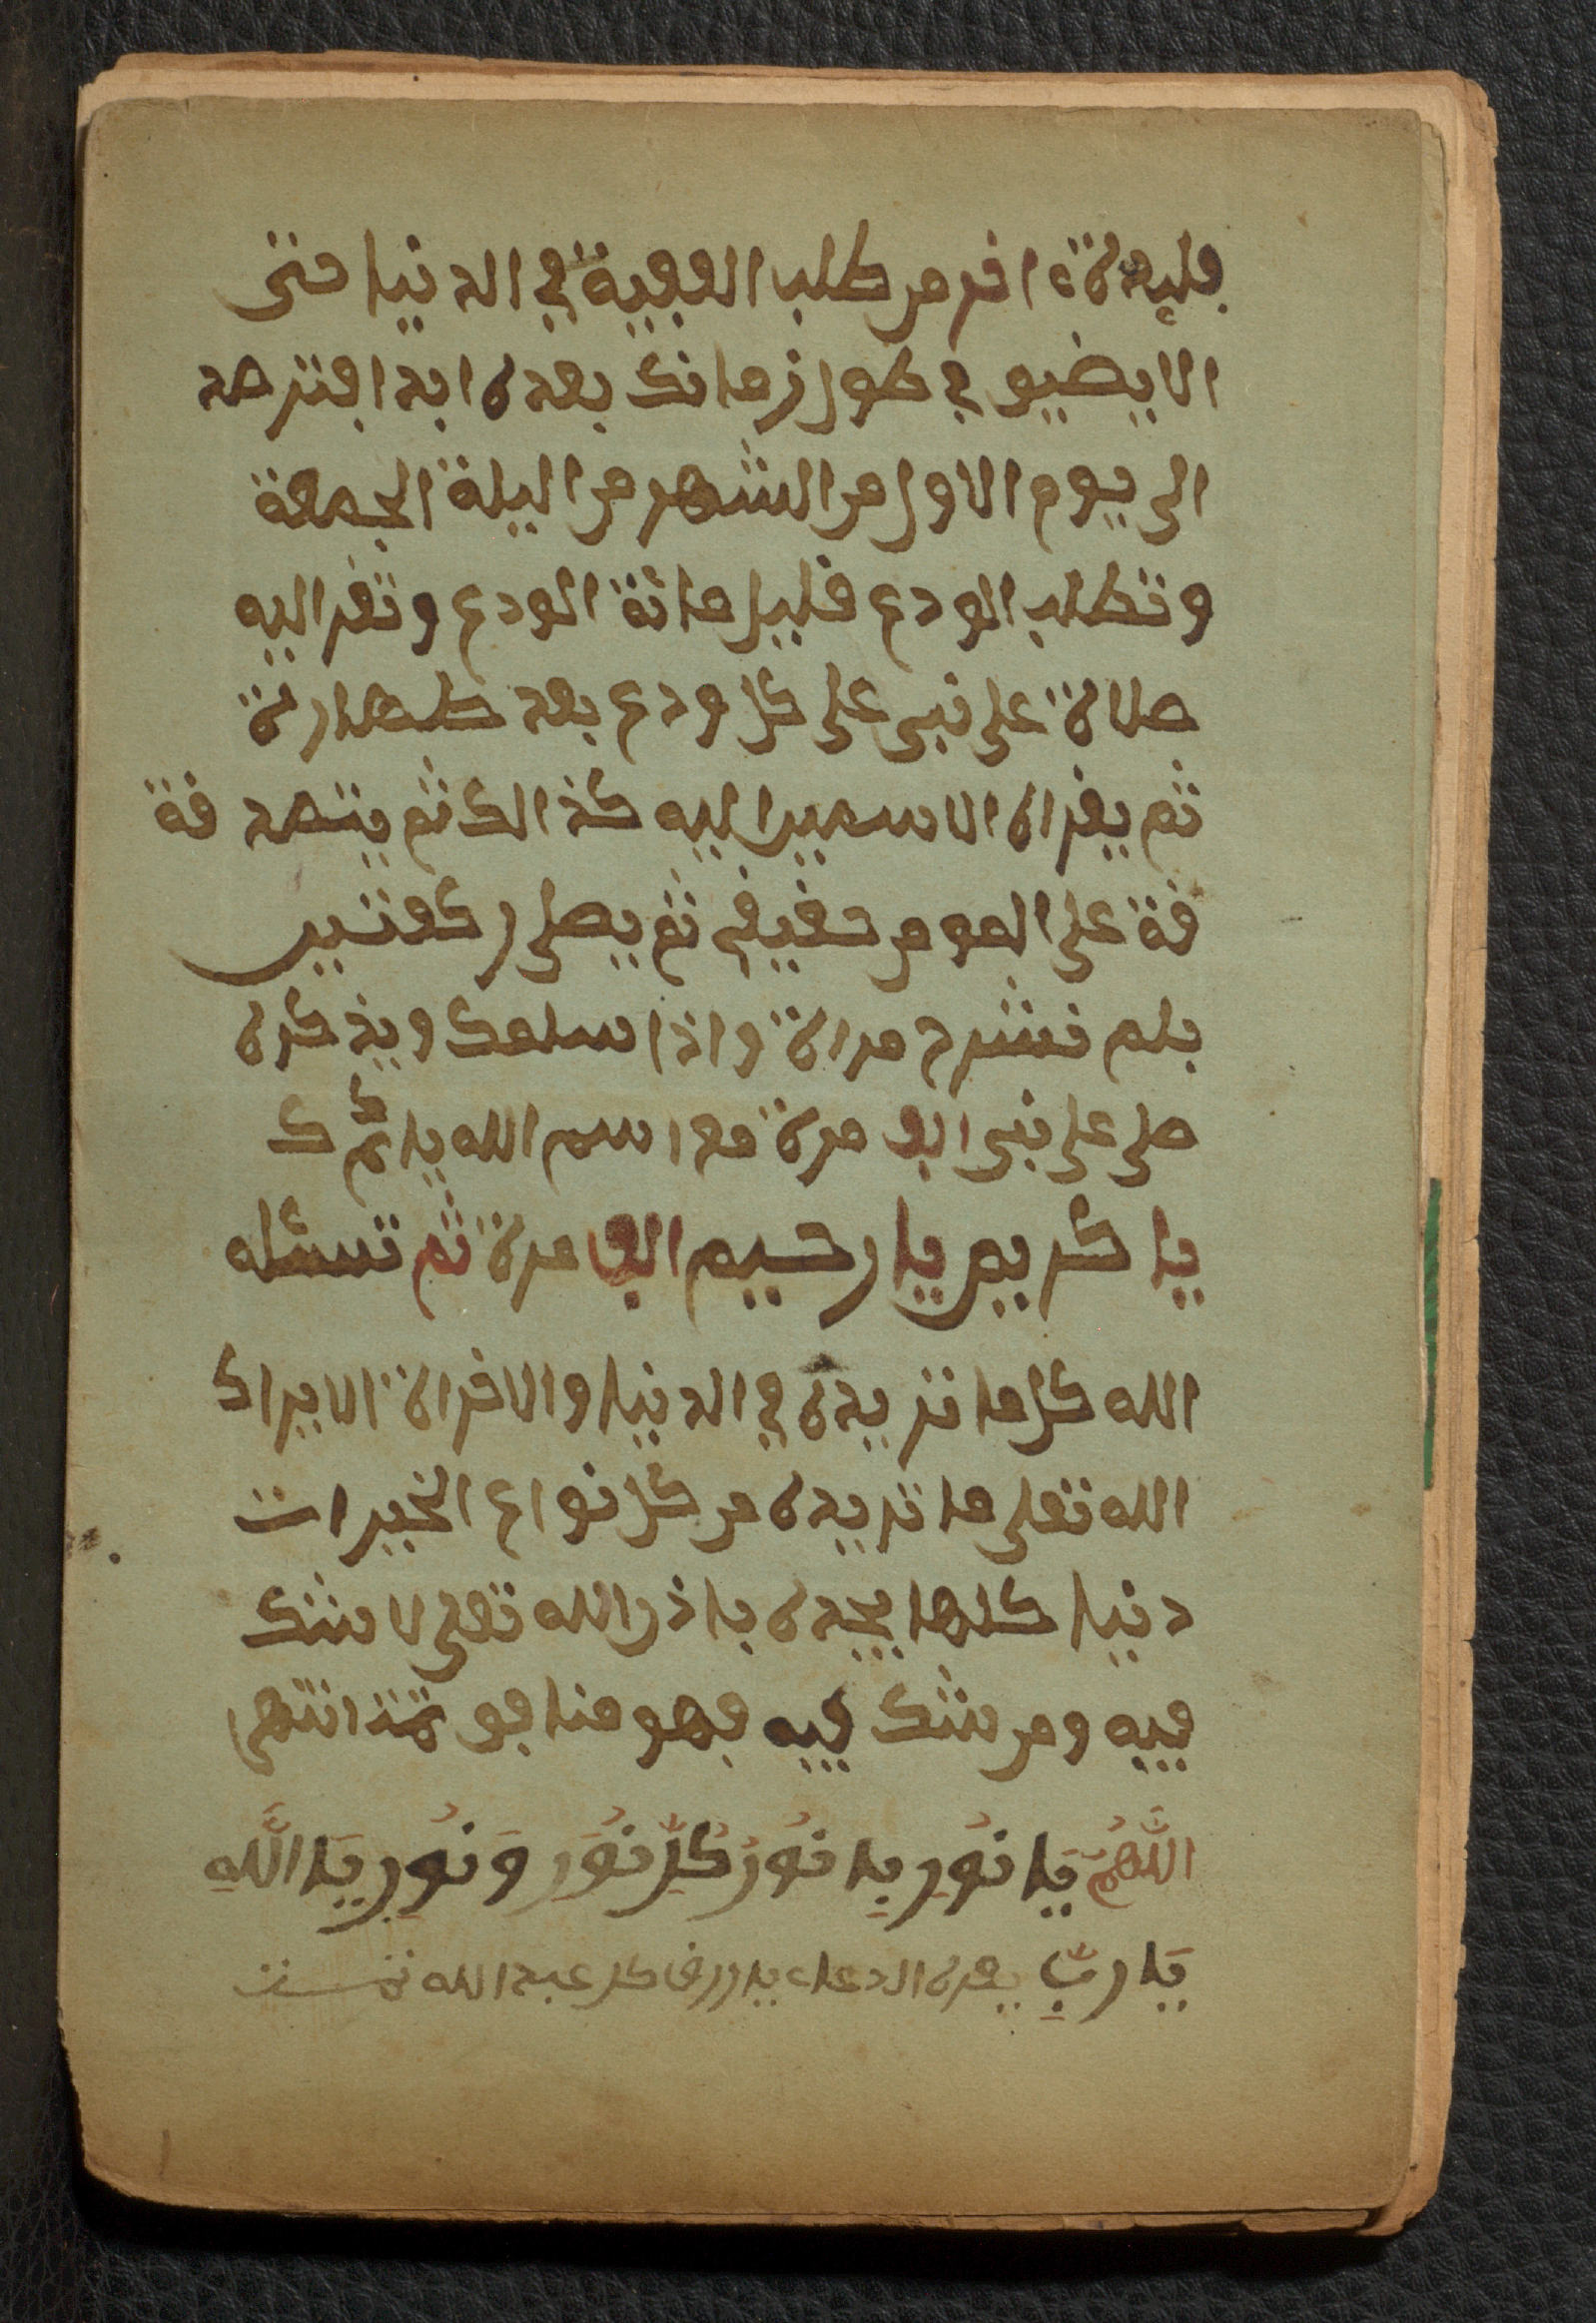 فايدة اخر من طلب الوفية في الدنيا حتى
الا يضيو في طول زمانك بعده ابدا فترصد
الى يوم الاول من الشهر من اليلة الجمعة
وتطلب الودع قليل مائة الودع وتقر اليه
صلاة على نبي على كل ودع بعد طهارتة
ثم يقراه الاسمين اليه كذالك ثم يتصد قة
قة على المومن حقيقي ثم يصلى ركعتين
بلم نشرح مراة واذا سلمك ويذكره
صلى على نبي الف مرة مع اسم الله يا
يا كريم يا رحيم الف مرة ثم تسئله
الله كل ما تريده في الدنيا والاخراة الا يراك
الله تعلى ما تريده من كل نواع الخيرات
دنيا كلها يجده باذن الله تعلى لا شك
فيه ومن شك فيه فهو منافو تمت انتهى
اللَّهُمَّ يَا نُورِ يا نُورُ كُلِّ نُورِ وَنُورِ يَا اللَّهِ
يَا رَبِّ يقره الدعاء يا كل عبد الله تمت